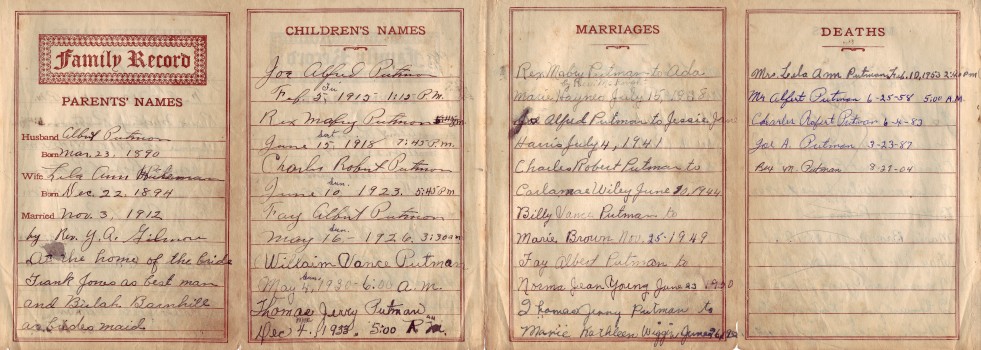 Family Record
PARENTS' NAMES
Husband Albert Putman
Born Mar. 23, 1890
Wife Lela Ann
Born Dec 22, 1894
Married Nov. 3, 1912
by Rev. Y.A. Gilmore
At the home of the bride
Frank Jones as best man
and Bulah Barnhill
as brides maid
CHILDREN'S NAMES
Joe Alfred Putman
Feb. 5, 1915- 1:15 P.M.
Rex Mabry Putman
sat.
June 15, 1918 7:45 P.M.
Charles Robert Putman
sun.
June 10, 1923, 5:45 P.M.
Fay Albert Putman
sun.
May 16- 1926, 3:30 a.m
Willaim Vance Putman
May 4, 1930- 6:00 A.M.
Thomas Jerry Putman
Dec 4, 1933. 5:00
MARRIAGES
Rex Mabry Putman to Ada
Marie July 15, 1938
Joe Alfred Putman to Jessie
Harris July 4, 1941
Charles Robert Putman to
Carlamae Wiley June 1944
Billy Vance Putman to
Marie Brown Nov. 25-1949
Fay Albert Putman to
Norma Jean Young June 23
Thomas Jerry Putman to
Marie Kathleen
DEATHS
Mrs. Leila Ann Putman Feb. 10, 1953 2:40 P.M
Mr Albert Putman 6-25-58 5:00 A.M.
Charles Robert Putman 6-4-83
Joe A. Putman 3-23-87
Rex M. Putman 8-27-04